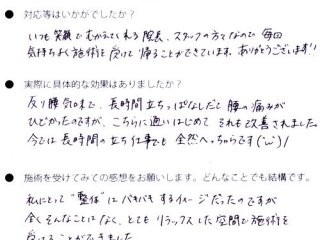 ● 対応等はいかがでしたか？
いつも笑顔でむかえてくれる院長、スタッフの方々なので毎回
気持ちよく施術を受けて帰ることができています。ありがとうございます!!
● 実際に具体的な効果はありましたか？
反り腰気味で、長時間立ちっぱなしだと腰の痛みが
ひどかったのですが、こちらに通いはじめて それも改善されました。
今では長時間の立ち仕事でも 全然へっちゃらです(˙ω˙)/
● 施術を受けてみての感想をお願いします。どんなことでも結構です。
私にとって"整体"にバキバキするイメージだったのですが
全くそんなことはなく、とてもリラックスした空間で施術を
受けることができました